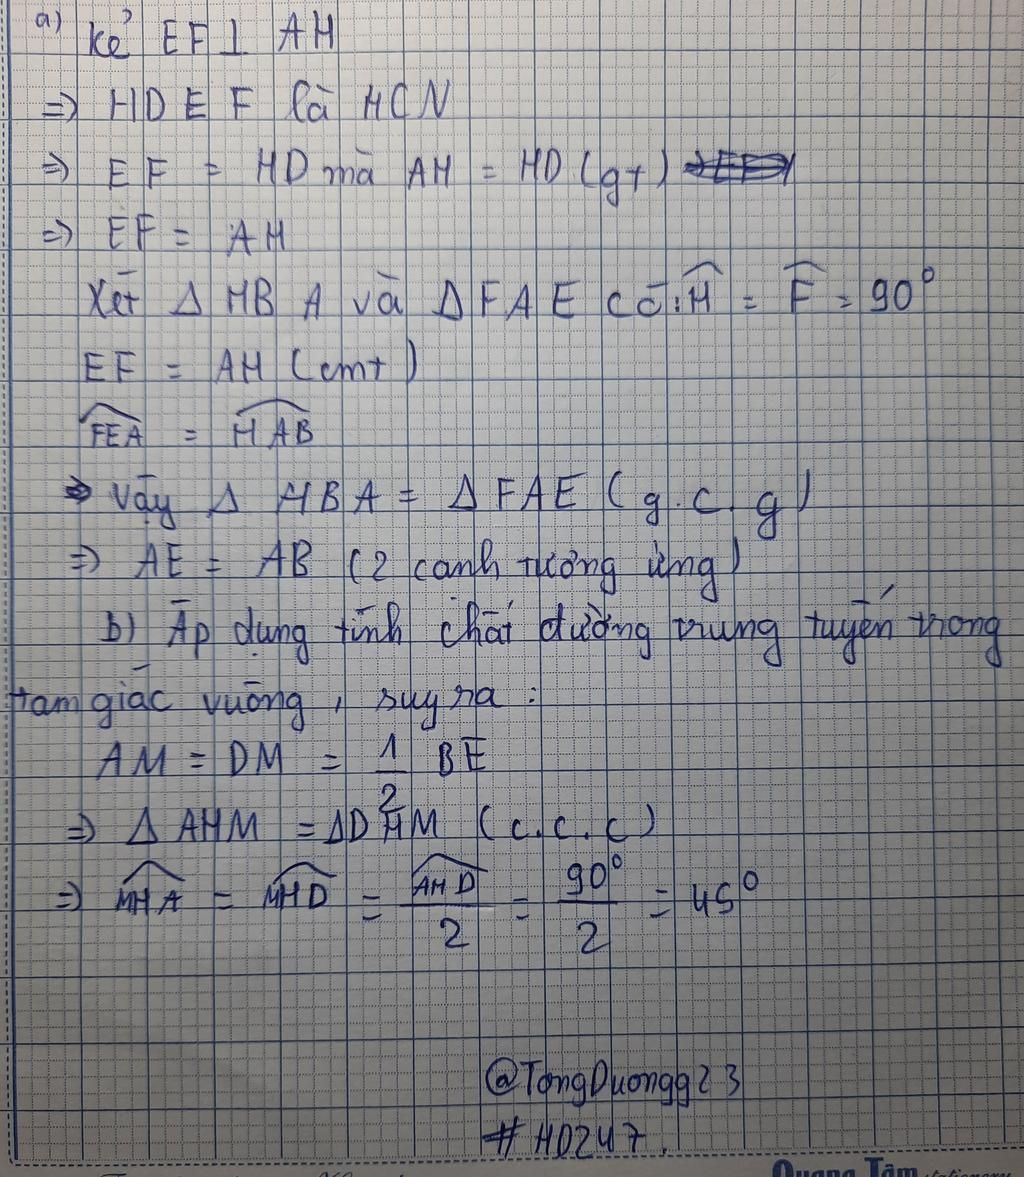 a) kẻ EF ⊥ AH
=> HDEF là HCN
=> EF = HD mà AH = HD (gt)
=> EF = AH
Xét Δ HBA và Δ FAE có: Ĥ = F̂ = 90°
EF = AH (cmt)
\widehat{FEA} = \widehat{HAB}
=> vậy Δ HBA = Δ FAE (g.c.g)
=> AE = AB (2 cạnh tương ứng)
b) Áp dụng tính chất đường trung tuyến trong
tam giác vuông, suy ra :
AM = DM = \frac{1}{2} BE
=> Δ AHM = ΔDHM (c.c.c)
=> \widehat{MHA} = \widehat{MHD} = \frac{\widehat{AHD}}{2} = \frac{90°}{2} = 45°
@TongDuongg23
#HD247.
Quang Tâm stationery